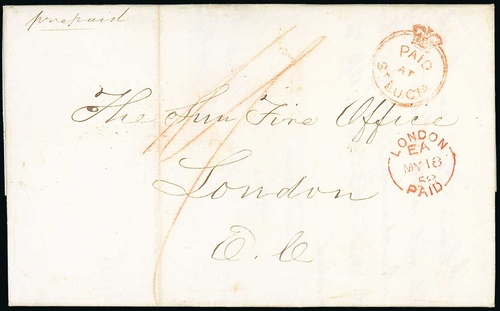 prepaid
PAID
AT
ST LUCIA
The Sun Fire Office
London
E.C
LONDON
EA
MY 18
59
PAID